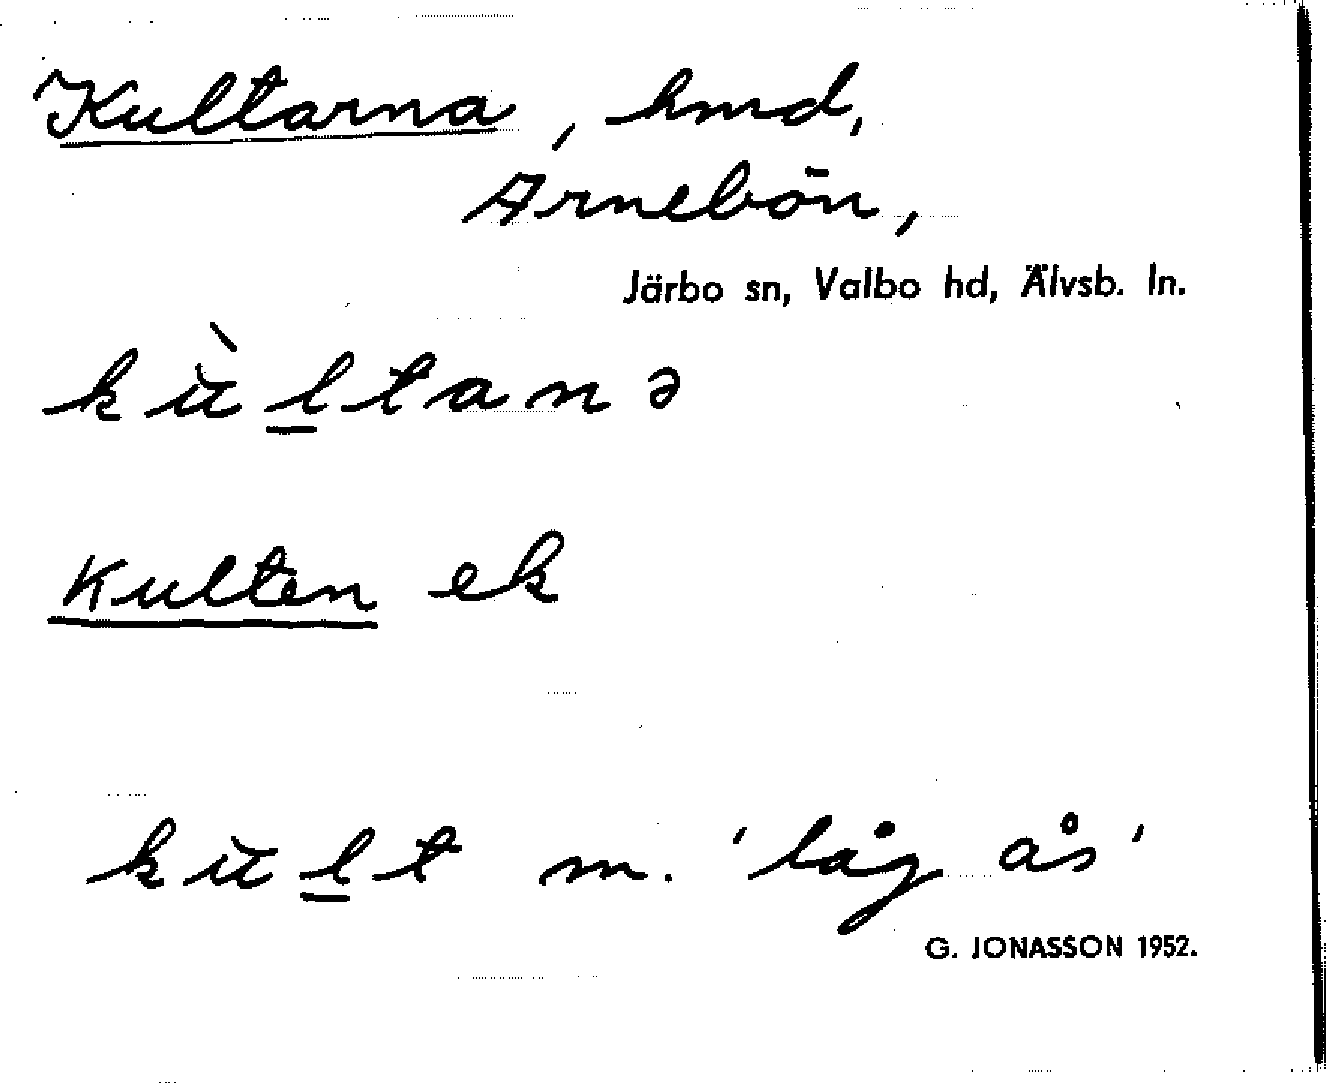 Kultarna, hmd,
Arnebön,
Järbo sn, Valbo hd, Älvsb. ln.
kùltanə
Kulten ek
kult m. 'låg ås'
G. JONASSON 1952.